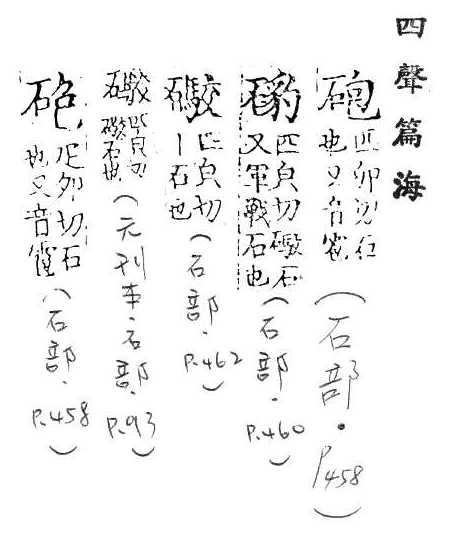 四聲篇海
砲
匹卯切石
也又音雹
(石部.P.458)
匹皃切礮石
又軍戰石也
(石部.P.460)
匹皃切
丨石也
(石部.P.462)
匹皃切
礮石也
(元刊本.石部.P.93)
疋卯切石
也又音雹
(石部.P.458)